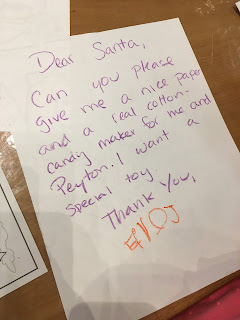 Dear Santa,
Can you please
give me a nice paper
and a real cotton-
candy maker for me and
Peyton. I want a
special toy.
Thank you,